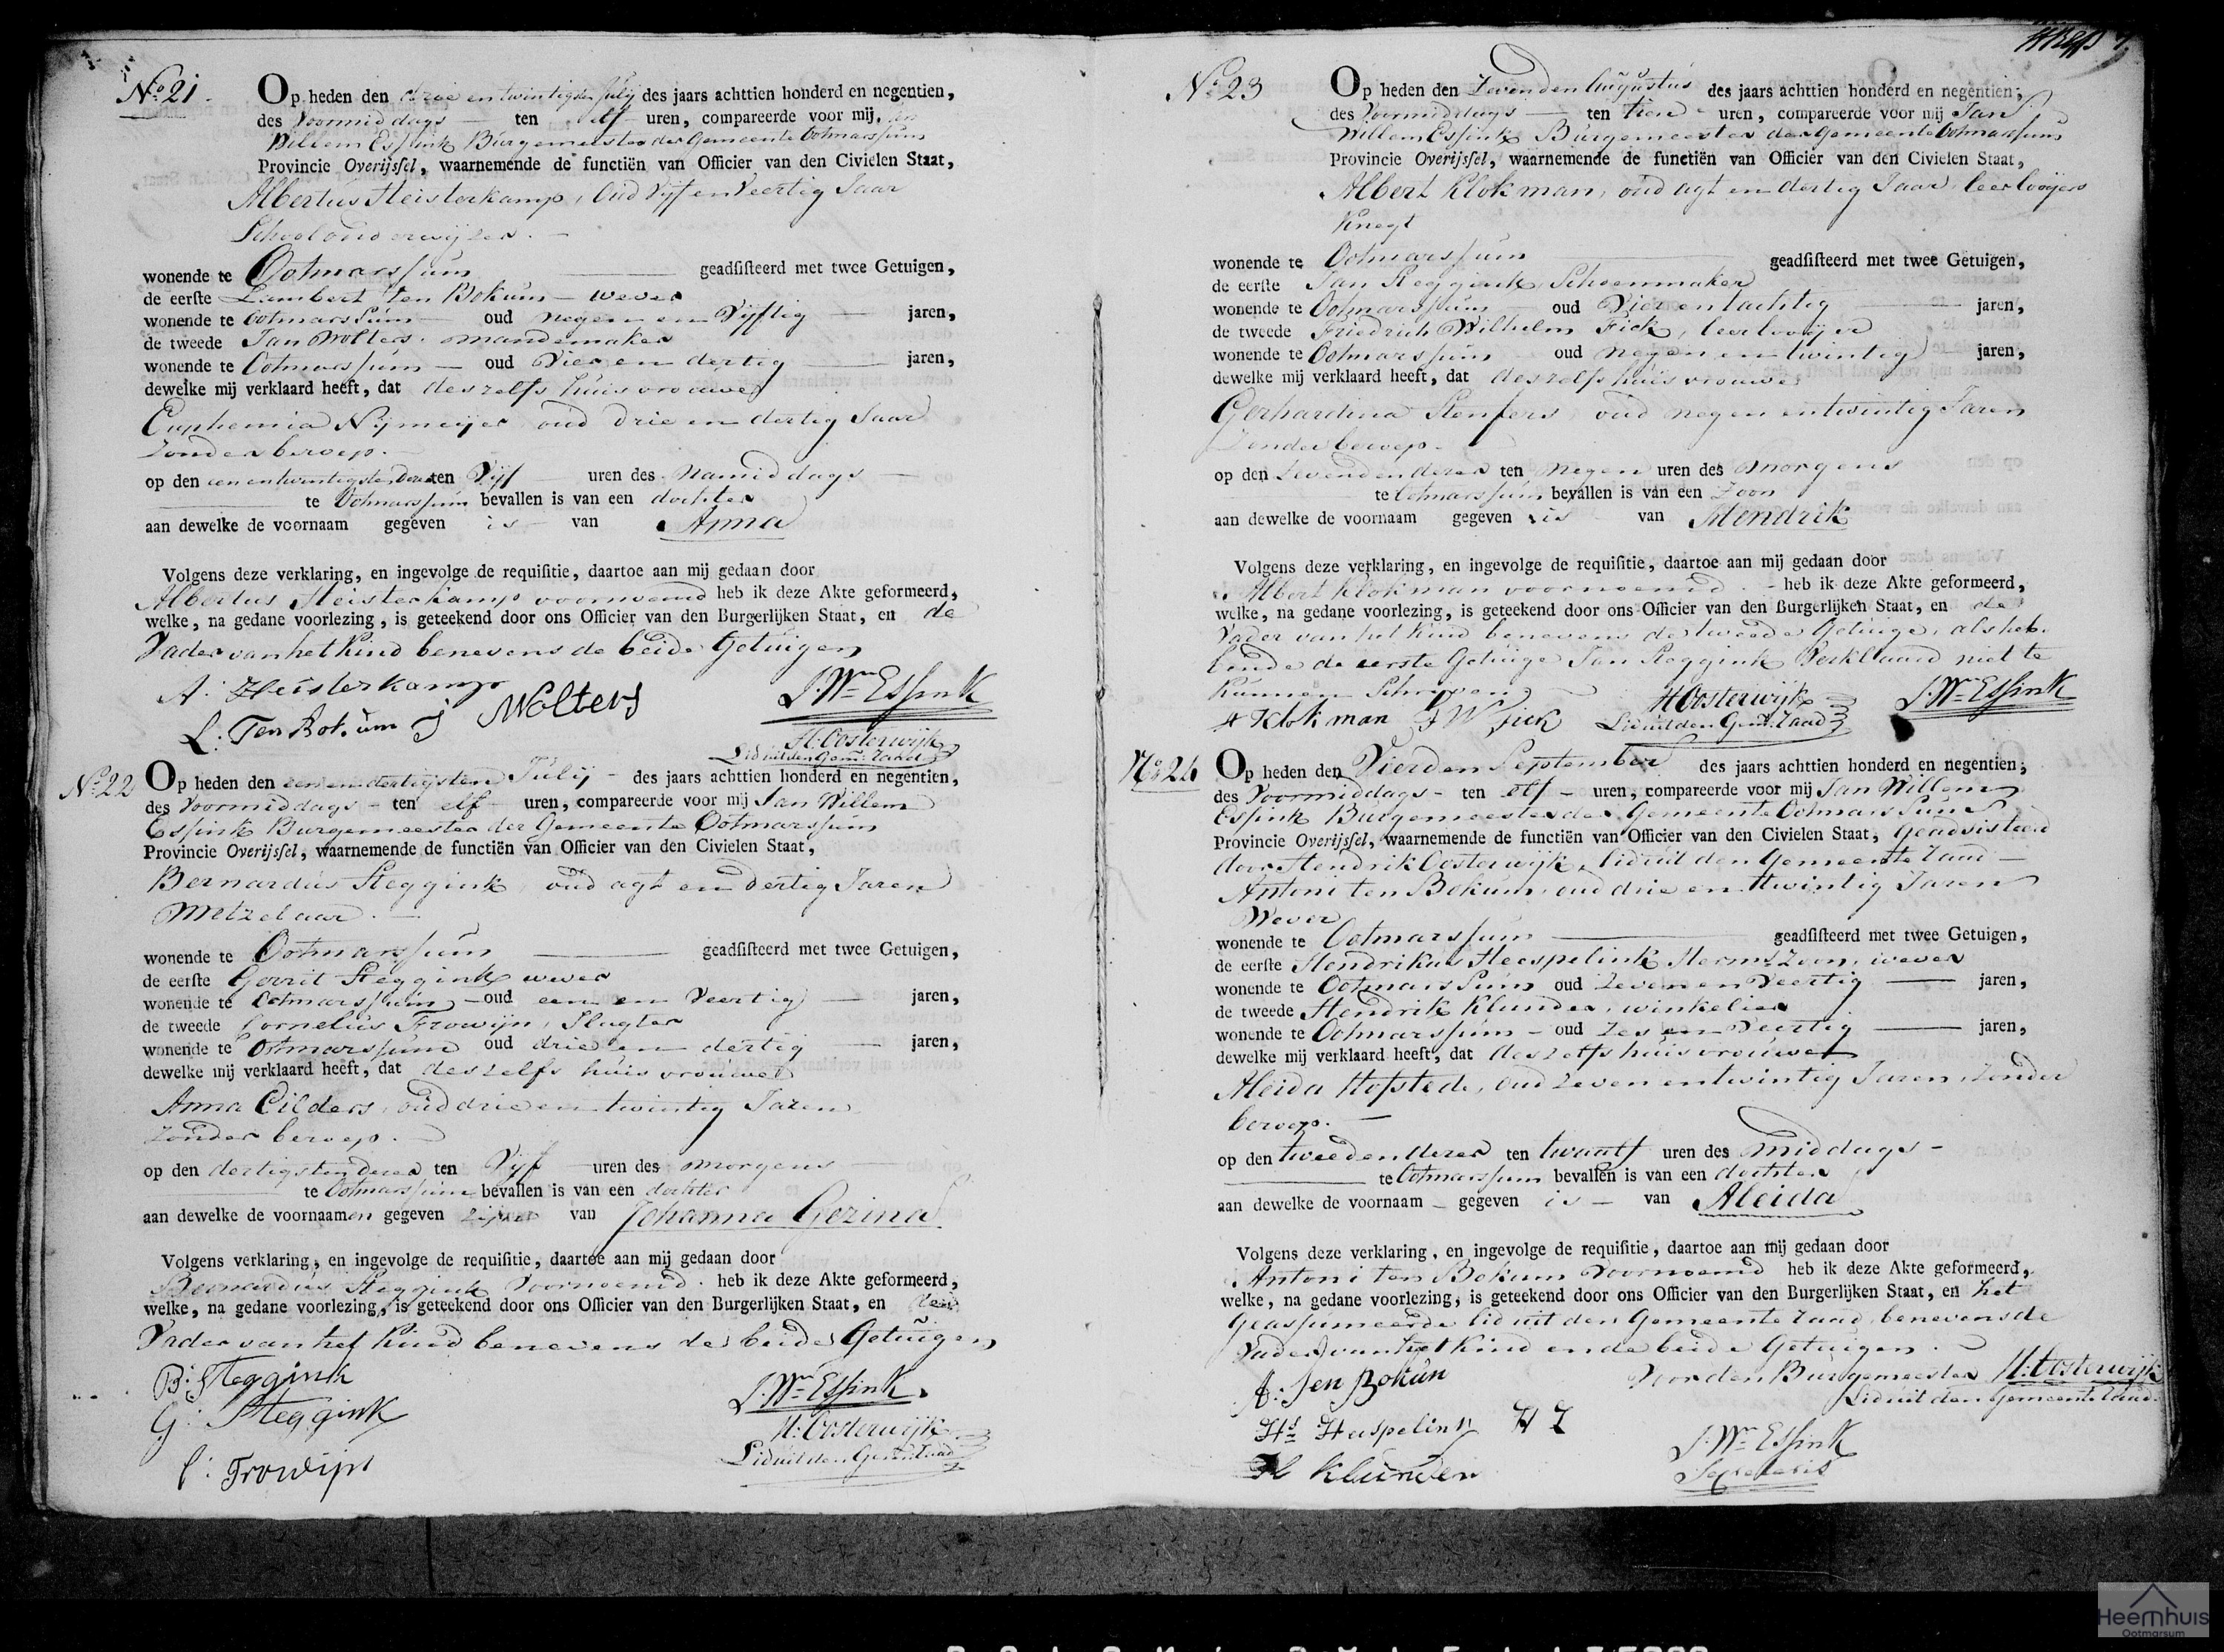 No. 21.
Op heden den drie en twintigsten July des jaars achttien honderd en negentien,
des Voormiddags ten elf uren, compareerde voor mij, Jan
Willem Essink Burgemeester der Gemeente Ootmarssum
Provincie Overijssel, waarnemende de functiën van Officier van den Civielen Staat,
Albertus Heisterkamp, oud Vyf en Veertig Jaar
Schoolonderwijzer. —
wonende te Ootmarssum — geadsisteerd met twee Getuigen,
de eerste Lambert ten Bokum — wever
wonende te Ootmarssum — oud negen en Vyftig — jaren,
de tweede Jan Wolters. mandemaker
wonende te Ootmarssum — oud Vier en dertig — jaren,
dewelke mij verklaard heeft, dat deszelfs huisvrouwe
Euphemia Nymeijer oud drie en dertig Jaar
Zonder beroep. —
op den een en twintigsten dezer ten Vyf uren des Namiddags —
te Ootmarssum bevallen is van een dochter
aan dewelke de voornaam gegeven is — van Anna
Volgens deze verklaring, en ingevolge de requisitie, daartoe aan mij gedaan door
Albertus Heisterkamp voornoemd heb ik deze Akte geformeerd,
welke, na gedane voorlezing, is geteekend door ons Officier van den Burgerlijken Staat, en de
Vader van het Kind benevens de beide Getuigen
A: Heisterkamp
J. Wm Essink
L: Ten Bokum J Wolters
H: Oosterwijk
Lid uit den Gem: Raad
No. 22
Op heden den een en dertigsten July — des jaars achttien honderd en negentien,
des Voormiddags — ten elf — uren, compareerde voor mij Jan Willem
Essink Burgemeester der Gemeente Ootmarssum
Provincie Overijssel, waarnemende de functiën van Officier van den Civielen Staat,
Bernardus Steggink, oud agt en dertig Jaren
Metzelaar. —
wonende te Ootmarssum — geadsisteerd met twee Getuigen,
de eerste Gerrit Steggink wever
wonende te Ootmarssum — oud een en Veertig — jaren,
de tweede Cornelius Frowijn, Slagter
wonende te Ootmarssum oud drie en dertig — jaren,
dewelke mij verklaard heeft, dat deszelfs huisvrouwe
Anna Eilders, oud drie en twintig Jaren
Zonder beroep. —
op den dertigsten dezer ten Vyf — uren des morgens —
te Ootmarssum bevallen is van een dochter
aan dewelke de voornaamen gegeven zijn van Johanna Gezina
Volgens verklaring, en ingevolge de requisitie, daartoe aan mij gedaan door
Bernardus Steggink Voornoemd. heb ik deze Akte geformeerd,
welke, na gedane voorlezing, is geteekend door ons Officier van den Burgerlijken Staat, en den
Vader van het Kind benevens de beide Getuigen
B: Steggink
J. Wm Essink
G: Steggink
H: Oosterwijk
Lid uit den Gem: Raad
C: Frowijn
No. 23
Op heden den Zevenden Augustus des jaars achttien honderd en negentien,
des Voormiddags — ten tien — uren, compareerde voor mij Jan
Willem Essink Burgemeester der Gemeente Ootmarssum
Provincie Overijssel, waarnemende de functiën van Officier van den Civielen Staat,
Albert Klokman, oud agt en dertig Jaar, leerlooijers
Knegt
wonende te Ootmarssum — geadsisteerd met twee Getuigen,
de eerste Jan Steggink, Schoenmaker
wonende te Ootmarssum oud Vier en tachtig — jaren,
de tweede Friedrich Wilhelm Fick, leerlooijer
wonende te Ootmarssum oud negen en twintig — jaren,
dewelke mij verklaard heeft, dat deszelfs huisvrouwe
Gerhardina Stenfers oud negen en twintig Jaren
Zonder beroep —
op den Zevenden dezer ten negen uren des morgens
te Ootmarssum bevallen is van een Zoon
aan dewelke de voornaam gegeven is van Hendrik
Volgens deze verklaring, en ingevolge de requisitie, daartoe aan mij gedaan door
Albert Klokman voornoemd — heb ik deze Akte geformeerd,
welke, na gedane voorlezing, is geteekend door ons Officier van den Burgerlijken Staat, en de
Vader van het Kind benevens de tweede Getuige, als heb-
bende de eerste Getuige Jan Steggink Verklaard niet te
Kunnen Schrijven
A Klokman F W Fick
H Oosterwijk
Lid uit den Gem: Raad
J. Wm Essink
No. 24
Op heden den Vierden September des jaars achttien honderd en negentien,
des Voormiddags — ten elf — uren, compareerde voor mij Jan Willem
Essink Burgemeester der Gemeente Ootmarssum
Provincie Overijssel, waarnemende de functiën van Officier van den Civielen Staat, Geadsisteerd
door Hendrik Oosterwijk, lid uit den Gemeente Raad —
Antoni ten Bokum, oud drie en twintig Jaren
Wever
wonende te Ootmarssum — geadsisteerd met twee Getuigen,
de eerste Hendrikus Heespelink Herms Zoon, wever
wonende te Ootmarssum oud Zeven en Veertig — jaren,
de tweede Hendrik Klunder, winkelier
wonende te Ootmarssum — oud Zes en Veertig — jaren,
dewelke mij verklaard heeft, dat deszelfs huisvrouwe
Aleida Hofstede, oud Zeven en twintig Jaren, Zonder
beroep. —
op den tweeden dezer ten twaalf uren des Middags —
te Ootmarssum bevallen is van een dochter
aan dewelke de voornaam — gegeven is — van Aleida
Volgens deze verklaring, en ingevolge de requisitie, daartoe aan mij gedaan door
Antoni ten Bokum Voornoemd heb ik deze Akte geformeerd,
welke, na gedane voorlezing, is geteekend door ons Officier van den Burgerlijken Staat, en het
Geassumeerde lid uit den Gemeente Raad, benevens de
Vader van het Kind en de beide Getuigen.
A: Ten Bokum
Voor den Burgemeester H: Oosterwijk
Lid uit den Gemeente Raad.
Hs Heespelink H Z
J. Wm Essink
Secretaris
H Klunder
Heemhuis
Ootmarsum